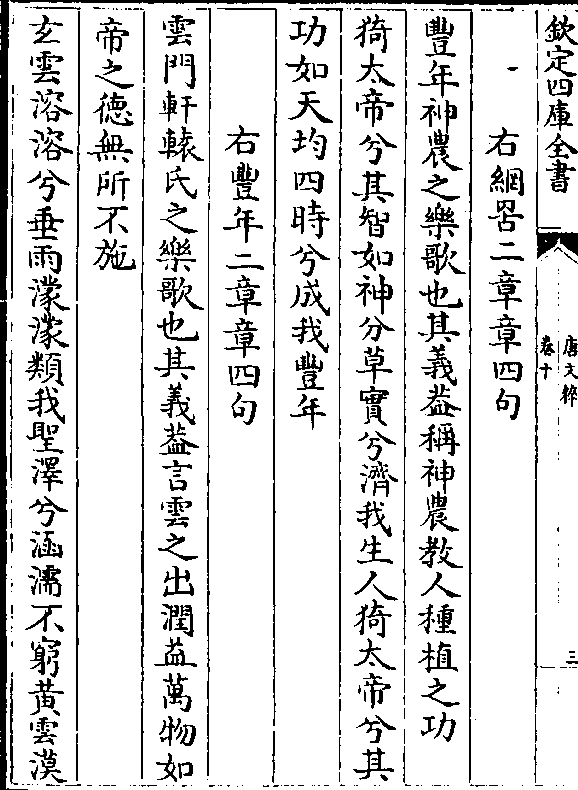 欽定四庫全書
唐文粹
卷十
三
右網罟二章章四句
豐年神農之樂歌也其義葢稱神農教人種植之功
猗太帝兮其智如神分草實兮濟我生人猗太帝兮其
功如天均四時兮成我豐年
右豐年二章章四句
雲門軒轅氏之樂歌也其義葢言雲之出潤益萬物如
帝之德無所不施
玄雲溶溶兮垂雨濛濛類我聖澤兮涵濡不窮黃雲漠